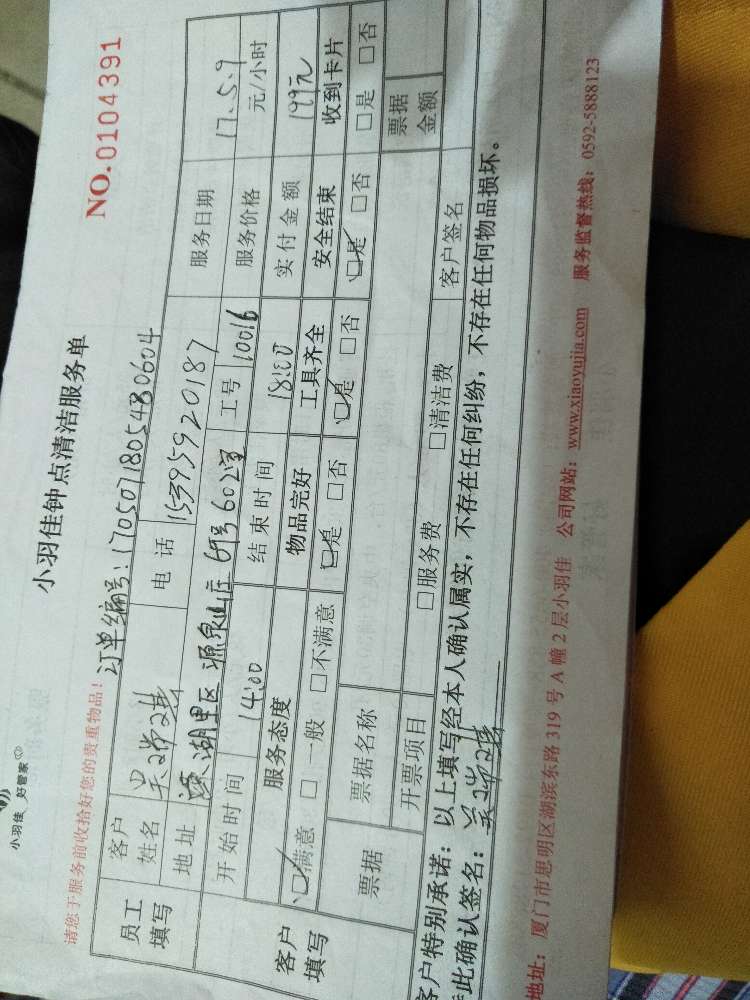 小羽佳 好管家
小羽佳钟点清洁服务单
NO.0104391
请您于服务前收拾好您的贵重物品！
订单编号：1705071805480604
员工填写
客户姓名 吴 电话 15395920187 服务日期 17.5.9
地址 湖里区源泉山庄69号602室 工号 10016 服务价格 元/小时
开始时间 14:00 结束时间 18:00 实付金额 199元
客户填写
服务态度 物品完好 工具齐全 安全结束 收到卡片
☑满意 □一般 □不满意 ☑是 □否 ☑是 □否 ☑是 □否 □是 □否
票据 票据名称 票据金额
开票项目 □服务费 □清洁费 客户签名
客户特别承诺：以上填写经本人确认属实，不存在任何纠纷，不存在任何物品损坏。
特此确认签名：吴
地址：厦门市思明区湖滨东路 319 号 A 幢 2 层小羽佳 公司网站：www.xiaoyujia.com 服务监督热线：0592-5888123